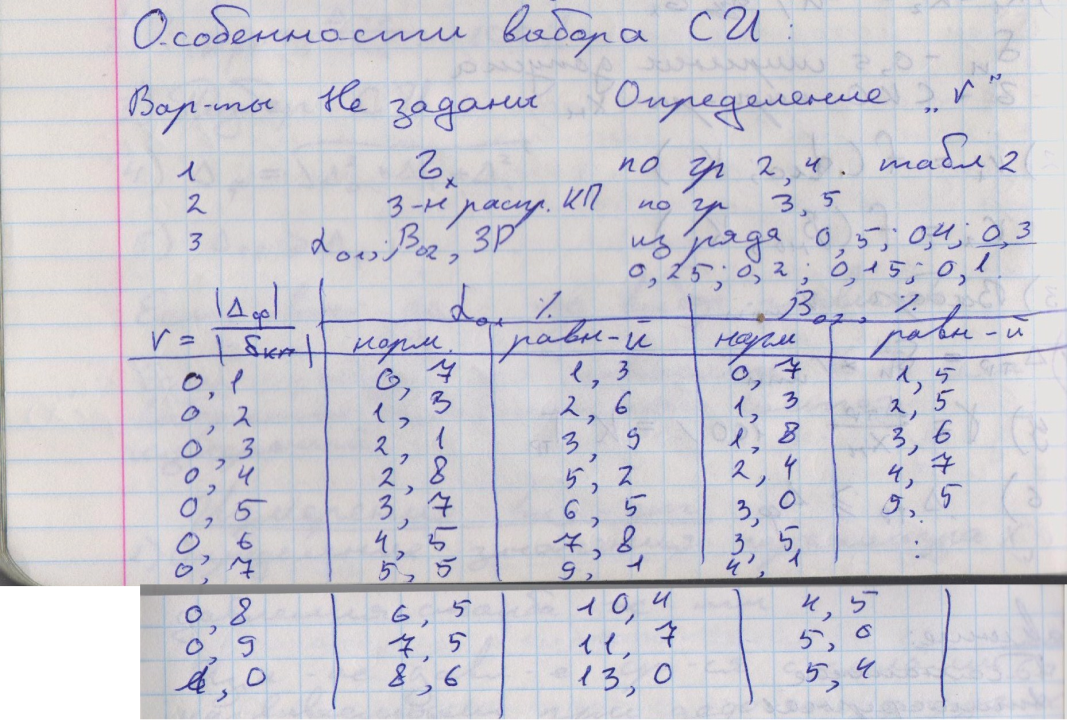 Особенности выбора СИ:
Вар-ты Не заданы Определение „r"
1 σx по гр 2, 4. табл 2
2 З-н распр. КП по гр 3, 5
3 α01; β02, ЗР из ряда 0,5; 0,4; 0,3
0,25; 0,2; 0,15; 0,1.
r = |Δф| / |δкп| α01 % β02, %
норм. равн-й норм равн-й
0,1 0,7 1,3 0,7 1,5
0,2 1,3 2,6 1,3 2,5
0,3 2,1 3,9 1,8 3,6
0,4 2,8 5,2 2,4 4,7
0,5 3,7 6,5 3,0 9,5
0,6 4,5 7,8 3,5 :
0,7 5,5 9,1 4,1 :
0,8 6,5 10,4 4,5
0,9 7,5 11,7 5,0
1,0 8,6 13,0 5,4